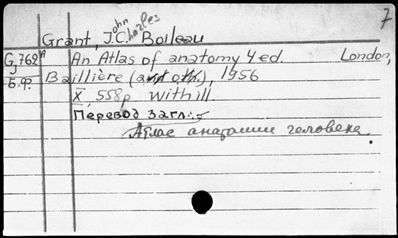 7
ohn Charles
Grant, J.C. Boileau
G762 An Atlas of anatomy 4 ed. London,
Б.ф. Baillière (and oth.), 1956
X, 558p with ill.
Перевод загл.:
Атлас анатомии человека